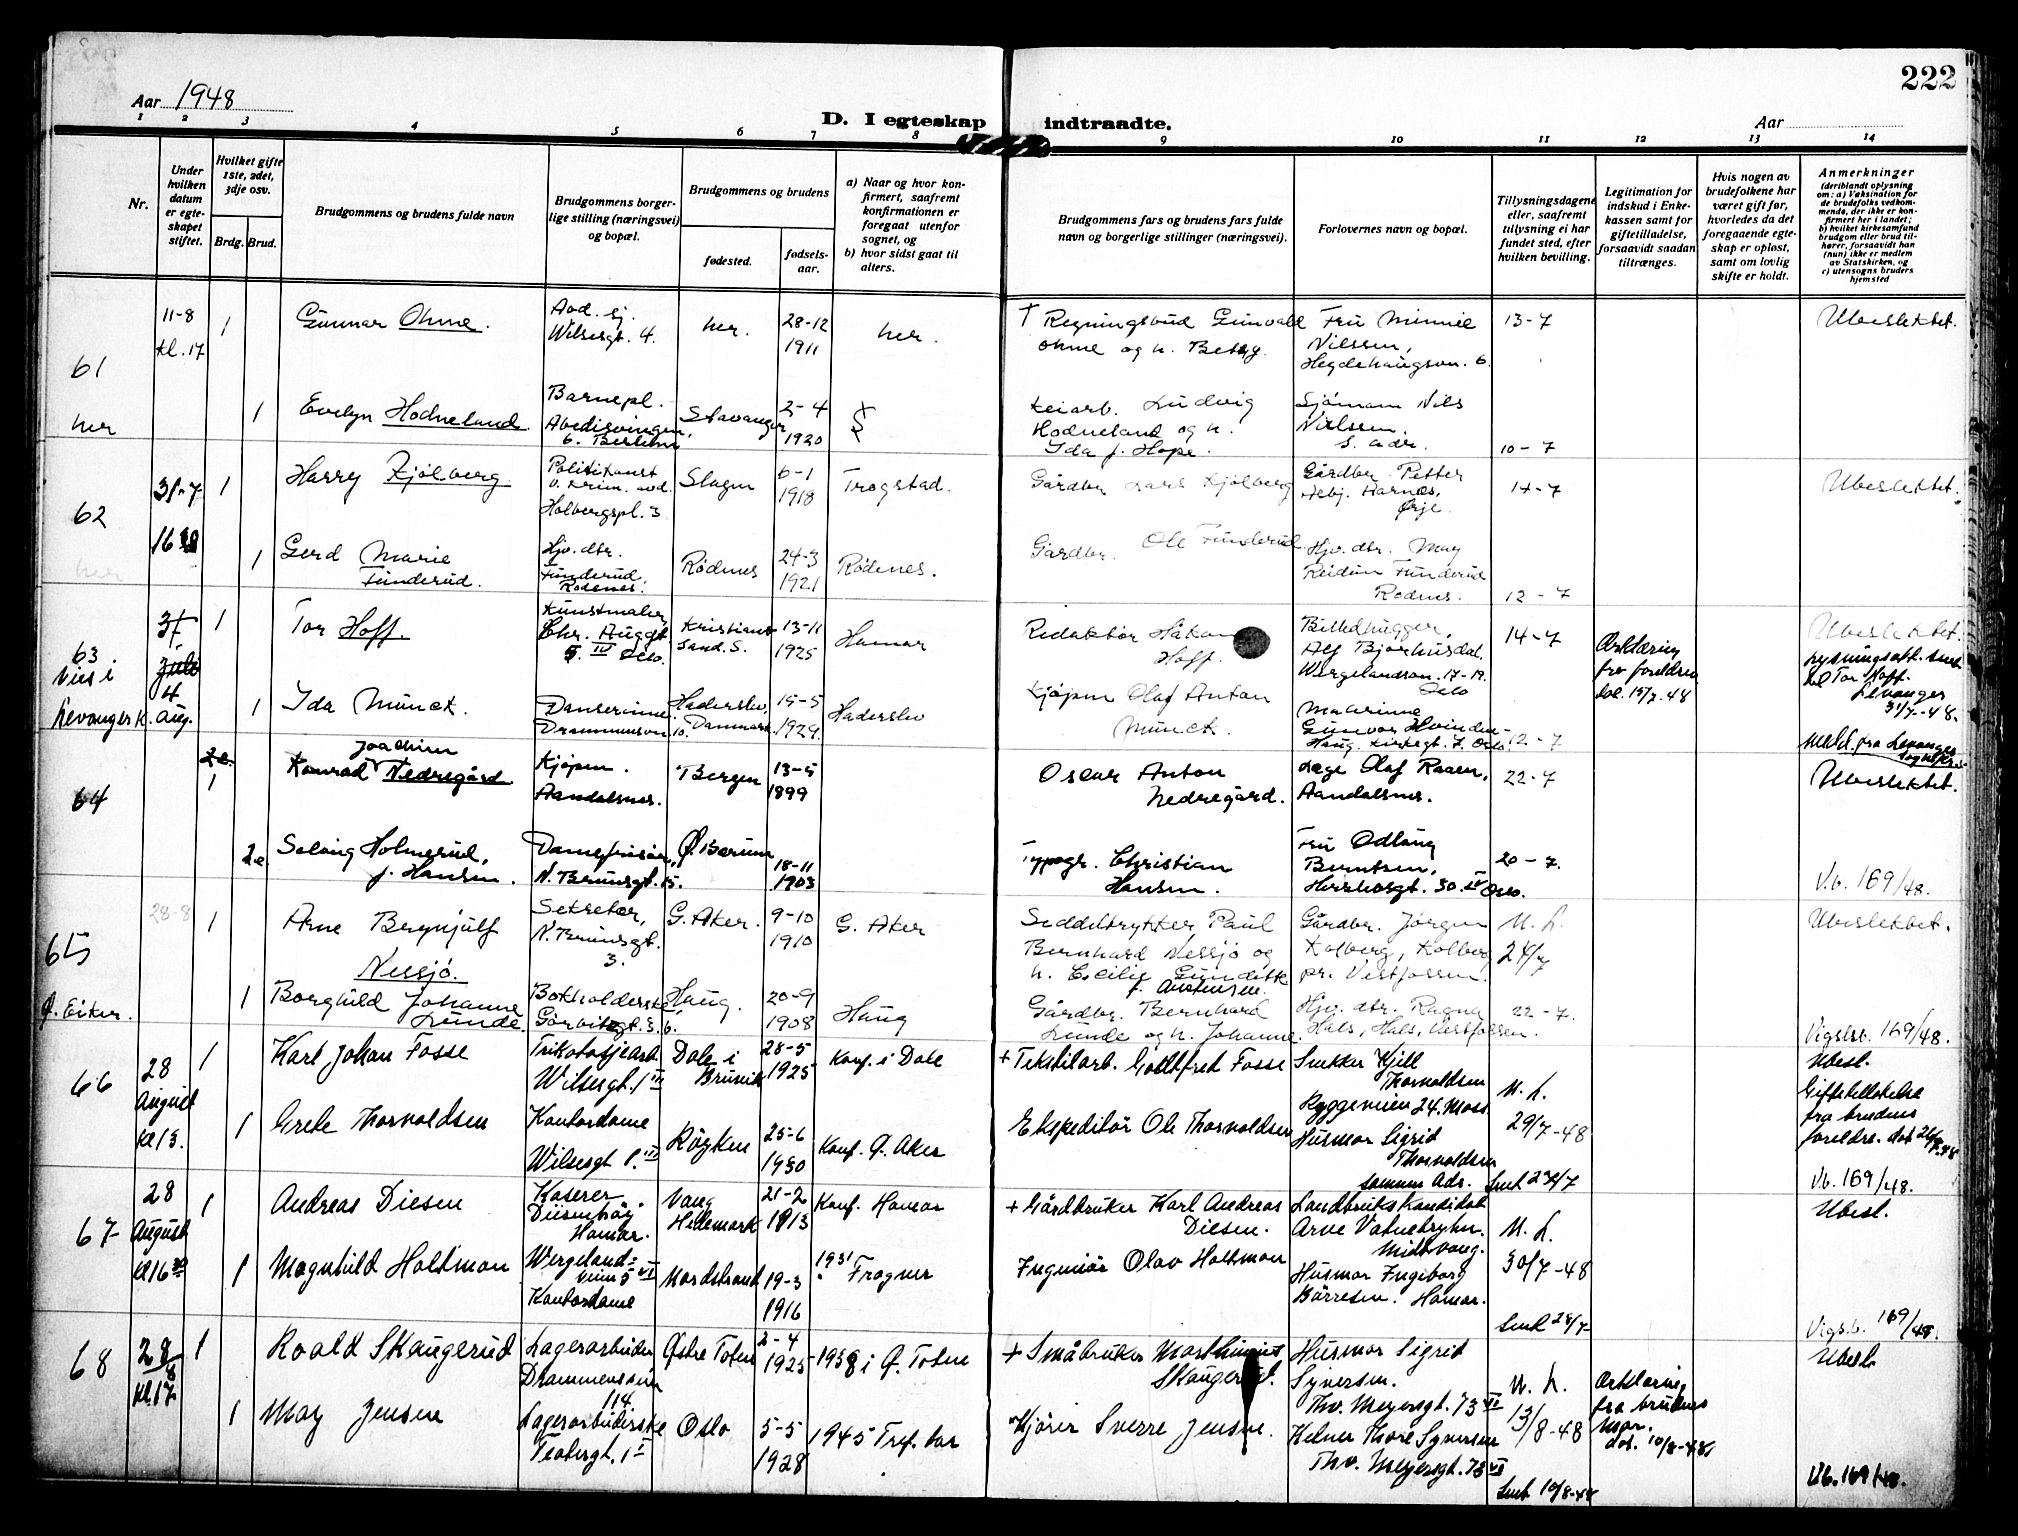 222
Aar 1948
D. I egteskap indtraadte.
Aar
1 2 3 4 5 6 7 8 9 10 11 12 13 14
Nr.
Under
hvilken
datum
er egte-
skapet
stiftet.
Hvilket gifte
1ste, 2det,
3dje osv.
Brdg. Brud.
Brudgommens og brudens fulde navn
Brudgommens borger-
lige stilling (næringsvei)
og bopæl.
Brudgommens og brudens
fødested.
fødsels-
aar.
a) Naar og hvor kon-
firmert, saafremt
konfirmationen er
foregaat utenfor
sognet, og
b) hvor sidst gaat til
alters.
Brudgommens fars og brudens fars fulde
navn og borgerlige stillinger (næringsvei).
Forlovernes navn og bopæl.
Tillysningsdagene
eller, saafremt
tillysning ei har
fundet sted, efter
hvilken bevilling.
Legitimation for
indskud i Enke-
kassen samt for
giftetilladelse,
forsaavidt saadan
tiltrænges.
Hvis nogen av
brudefolkene har
været gift før,
hvorledes da det
foregaaende egte-
skap er opløst,
samt om lovlig
skifte er holdt.
Anmerkninger
(deriblandt oplysning
om: a) Vaksination for
de brudefolks vedkom-
mende, der ikke er kon-
firmert her i landet;
b) hvilket kirkesamfund
brudgom eller brud til-
hører, forsaavidt han
(hun) ikke er medlem
av Statskirken, og
c) utensogns bruders
hjemsted
61
her
11-8
kl. 17
1
Gunnar Ohme.
Avd. sj.
Wilsesgt. 4.
her.
28-12
1911
her.
† Regningsbud Gunvald
Ohme og h. Betsy.
Fru Minnie
Nilssen,
Hegdehaugsvn. 6.
13-7
Ubeslektet.
1
Evelyn Hodneland.
Barnepl.
Stavanger
2-4
1920
Keiarb. Ludvig
Hodneland og h.
Ida f. Hope.
Sjömann Nils
Nielssen.
s. adr.
10-7
62
her
31-7
1
Harry Kjölberg
Politikonst
v. Krim. avd.
Holbergspl. 3
Slagen
6-1
1918
Trøgstad.
Gårdbr Lars Kjölberg
Gårdbr. Petter
Harnæs,
Ørje.
14-7
Ubeslektet.
1
Gerd Marie
Funderud.
Hjv. dtr.
Funderud,
Rödenes.
Rødenes
24-3
1921
Rødenes.
Gårdbr. Ole Funderud.
Hjv. dtr. May
Reidun Funderud
Rødenes.
12-7
63.
Viet i
Levanger k.
Juli
4
Aug.
1
Tor Hoff.
Kunstmaler
Chr. Auggt.
5. IV Oslo.
Kristian-
sand. S.
13-11
1925
Hamar
Redaktör Håkon
Hoff.
Billedhugger,
Alf Bjørhusdal.
Wergelandsvn. 17-19.
Oslo
14-7
Erklæring
fra foreldrene
dat. 15/7.48
Ubeslektet.
Lysningsatt. sendt
til Tor Hoff.
Levanger
31/7.-48.
1
Ida Munck.
Danserinne
Drammensvn 10.
Haderslev,
Danmark
15-5
1929.
Haderslev
Kjøpm Olaf Anton
Munck.
Gunvor Hvinden-
Haug. Kirkegt. 7. Oslo
12-7
meld. fra Levanger
64
1
Joachim
Konrad Nedregård
Kjøpm.
Aandalsnes.
Bergen
13-5
1899
Oscar Anton
Nedregård.
Læge Olaf Raaen,
Aandalsnes.
22-7
Ubeslektet.
2e
Solveig Holmsrud,
f. Hansen.
Damefrisør,
N. Brunsgt. 15.
Ø. Bærum
18-11
1903
Typogr. Christian
Hansen.
Fru Odlaug
Berntsen,
20-7.
V.b. 169/48.
65
Ø. Eiker.
28-8
1
Arne Brynjulf
Nessjö.
Sekretær,
N. Brunsgt.
3.
G. Aker.
9-10
1910
G. Aker
Seddeltrykker Paul
Bernhard Nessjö og
h. Cecilie
Gårdbr. Jørgen
Kolberg, Kolberg
pr. Vestfossen.
N. L.
24/7
Ubeslektet.
1
Borghild Johanne
Lunde.
Bokholderske
Haug.
20-9
1908
Haug
Gårdbr. Bernhard
Lunde og h. Johanne.
Hjv. dtr. Ragna
Hals, Hals, Vestfossen.
22-7.
Vigslsb. 169/48.
66
28
August
kl 13.
1
Karl Johan Fosse
Trikotasjearb
Wilsesgt. 1 III
Dale i
Bruvik
28-5
1925
Konf. i Dale
+ Tekstilarb. Gottfred Fosse
Snekker Kjell
Thorvaldsen
Ryggeveien 24. Moss.
N. L.
29/7-48
Ubesl.
Giftetillatelse
fra brudens
foreldre. dat 26/7.48
1
Grete Thorvaldsen
Kontordame
Wilsesgt 1. III
Röyken
25-6
1930
Konf. Ø. Aker
Ekspeditör Ole Thorvaldsen
Husmor Sigrid
Thorvaldsen
samme Adr.
Vb. 169/48.
67
28
August
kl 16 30
1
Andreas Diesen
Kaserer
Diesenhög
Hamar.
Vang
Hedemark
21-2
1913
Konf. Hamar
+ Gårdbruker Karl Andreas
Diesen.
Landbrukskandidat
Arve Vatnebryhn.
Midtvang.
N. L.
30/7-48
Ubesl.
1
Magnhild Holtmon
Wergeland-
veien 5 VI
Kontordame
Nordstrand
19-3
1916
1931
Frogner
Ingeniör Olav Holtmon
Husmor Ingeborg
Börresen. Hamar.
Vigsb. 169/48.
68
28/8
kl. 17
1
Roald Skaugerud
Lagerarbeider
Drammensvn
114.
Østre Toten
2-4
1925
1938 i Ø. Toten
+ Småbruker Marthinius
Skaugerud.
Husmor Sigrid
Syversen.
Thv. Meyersgt. 73 VI
N. L.
13/8-48
Erklæring
fra brudens
mor.
dat. 10/8-48
Ubesl.
1
May Jensen
Lagerarbeiderske
Oslo
5-5
1928
1945 Tref.
Kjörer Sverre Jensen.
Kelner Thore Syversen
Thv. Meyersgt. 73 VI
Vb. 169/48.